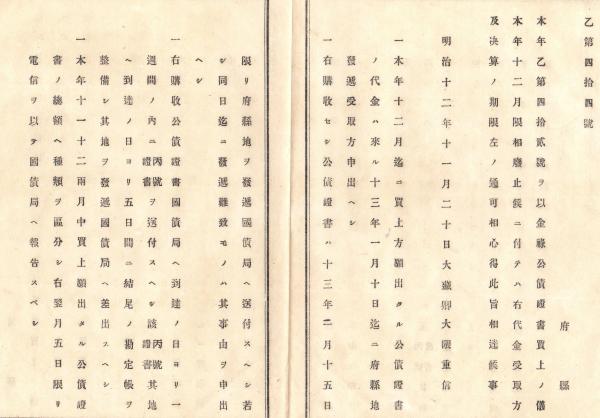 乙第四拾四號
府縣
本年乙第四拾貳號ヲ以金祿公債證書買上ノ儀
本年十二月限相廢止候ニ付テハ右代金受取方
及決算ノ期限左ノ通可相心得此旨相達候事
明治十二年十一月二十日大藏卿大隈重信
一本年十二月迄ニ買上方願出タル公債證書
ノ代金ハ來ル十三年一月十日迄ニ府縣地
發遞受取方申出ヘシ
一右購收セシ公債證書ハ十三年二月十五日
限リ府縣地ヲ發遞國債局ヘ送付スヘシ若
シ同日迄ニ發遞難致モノハ其事由ヲ申出
ヘシ
一右購收公債證書國債局ヘ到達ノ日ヨリ一
週間ノ內ニ丙號證書ヲ送付スヘシ該丙號證書其地
ヘ到達ノ日ヨリ五日間ニ結足ノ勘定帳ヲ
整備シ其地ヲ發遞國債局ヘ差出スヘシ
一本年十一十二兩月中買上願出タル公債證
書ノ總額ヘ種類ヲ區分シ右翌月五日限リ
電信ヲ以テ國債局ヘ報告スベシ